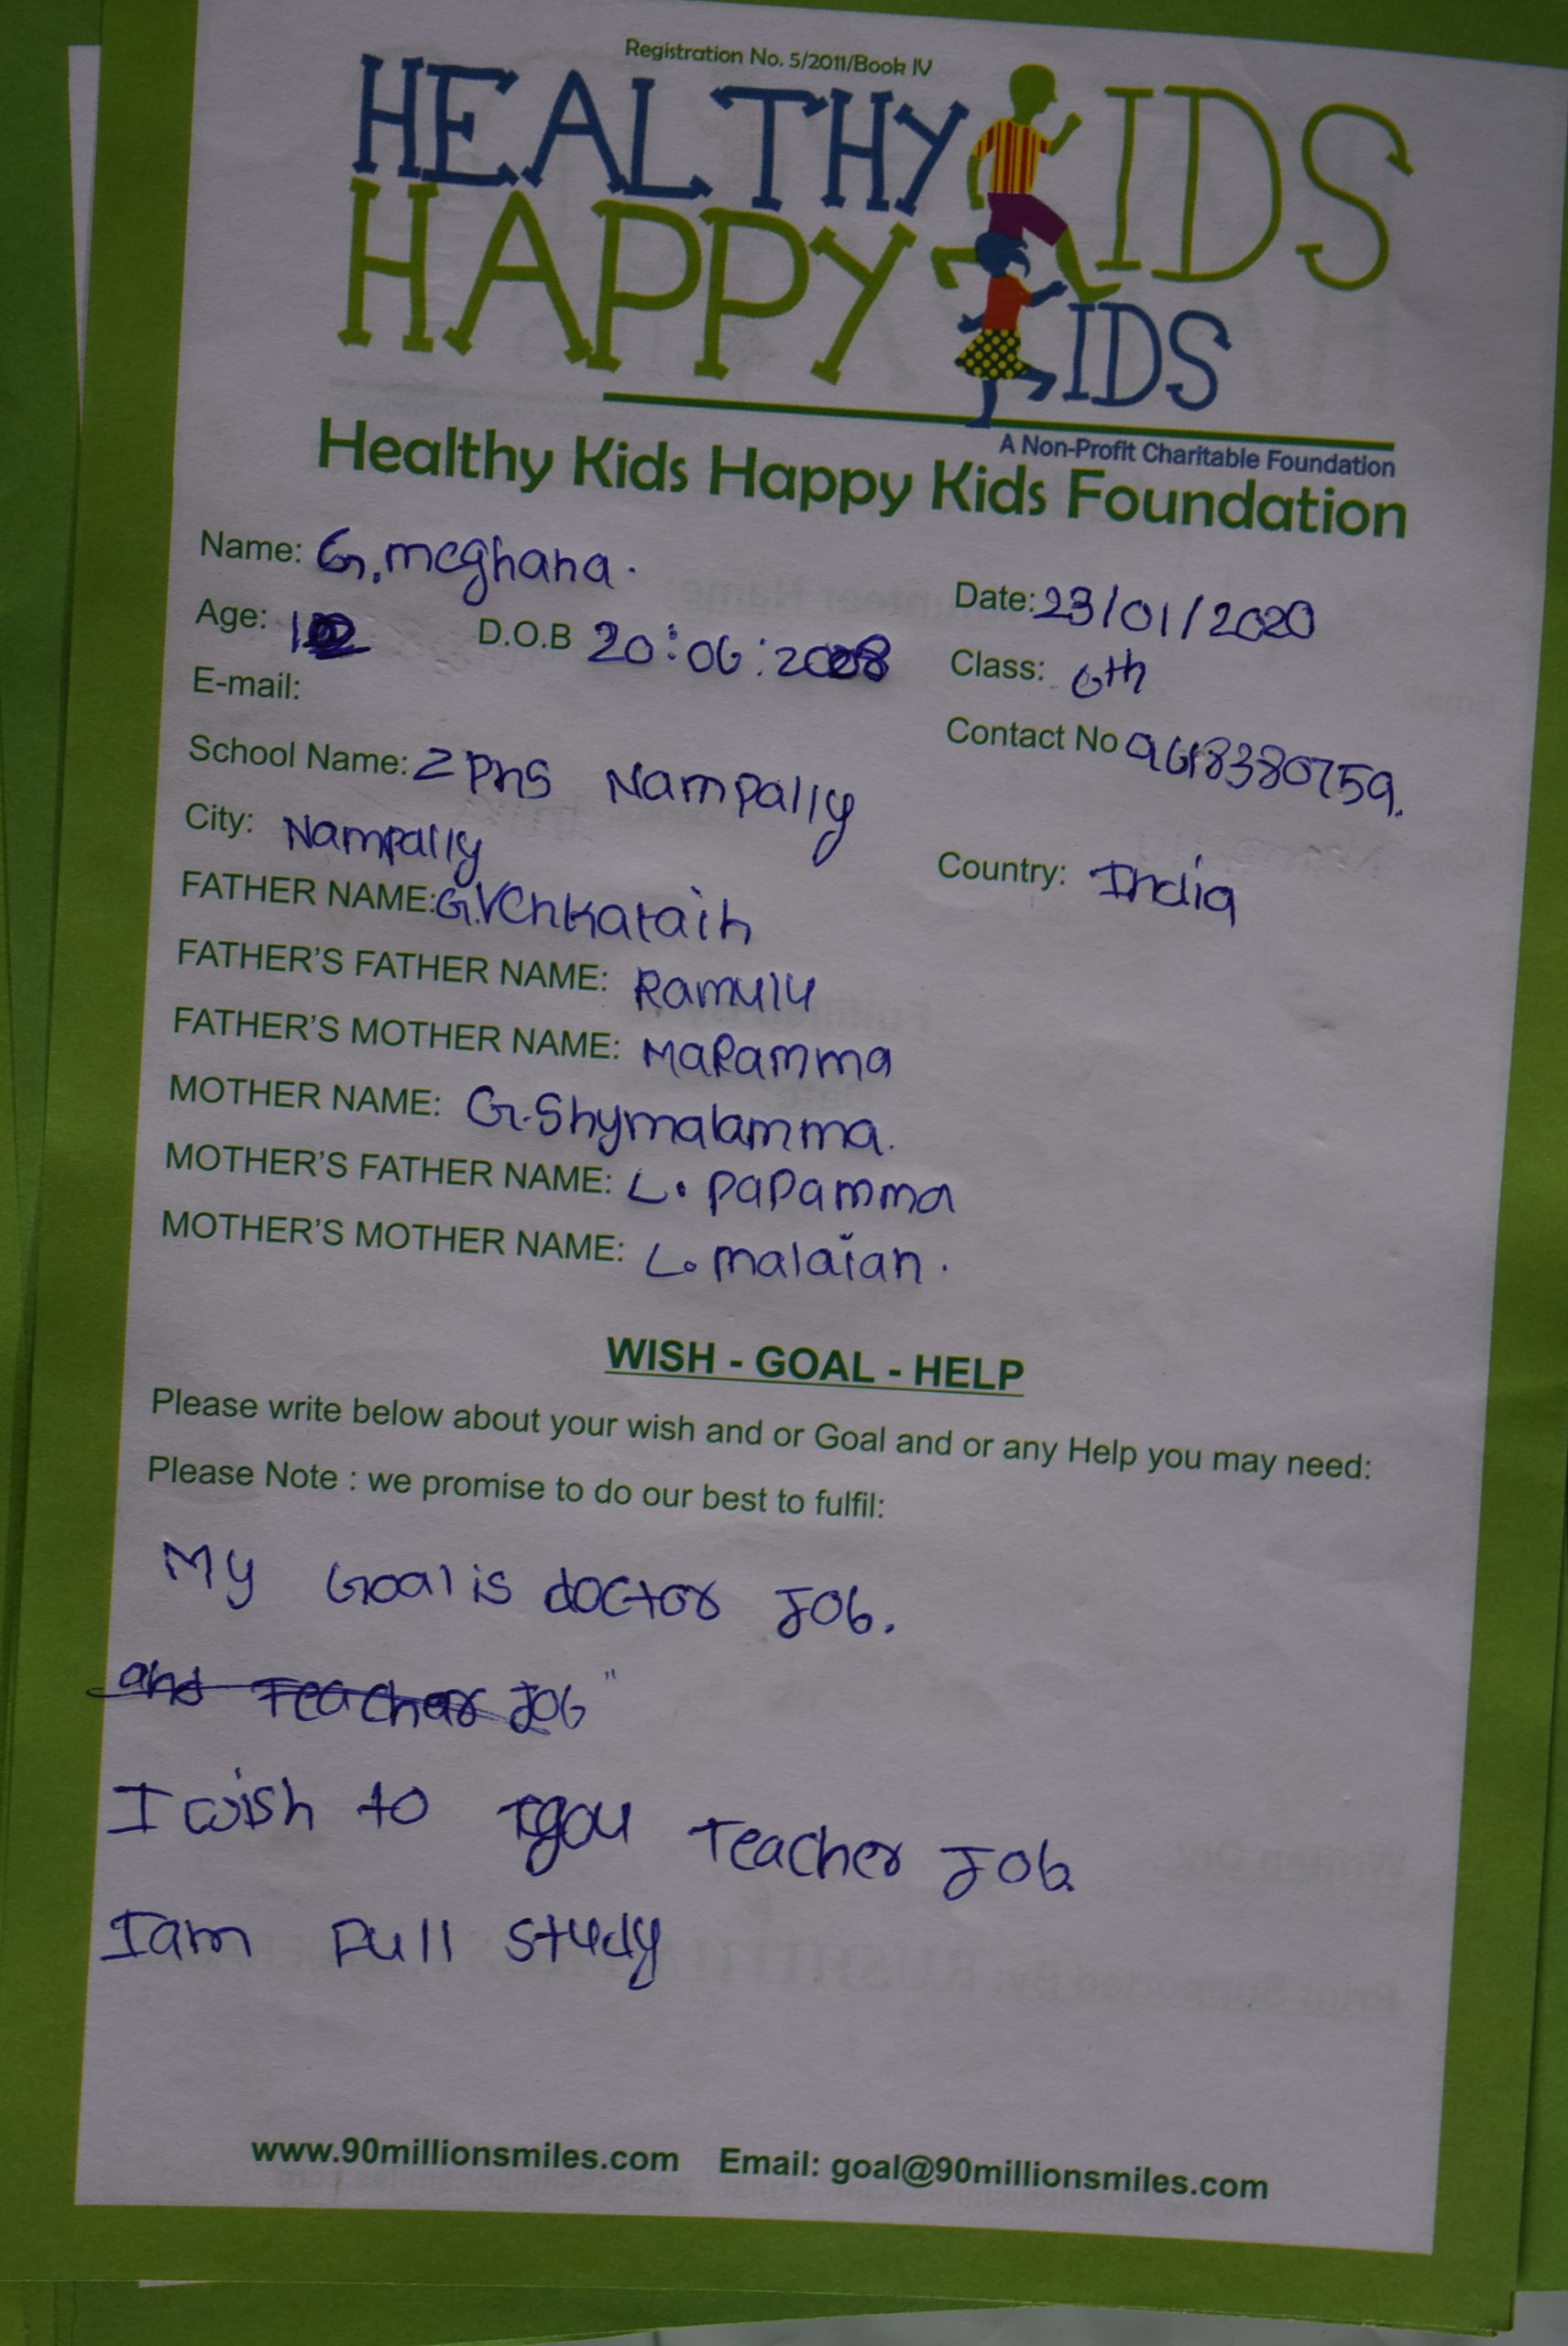 Registration No. 5/2011/Book IV
HEALTHY KIDS
HAPPY KIDS
A Non-Profit Charitable Foundation
Healthy Kids Happy Kids Foundation
Name: G. meghana.
Date: 23/01/2020
Age: D.O.B 20:06:2008
Class: 6th
E-mail:
Contact No 9618380759.
School Name: ZPHS Nampally
City: Nampally
Country: India
FATHER NAME: G.Venkataih
FATHER'S FATHER NAME: Ramulu
FATHER'S MOTHER NAME: MaRamma
MOTHER NAME: G. Shymalamma.
MOTHER'S FATHER NAME: L. PaPamma
MOTHER'S MOTHER NAME: L. malaian.
WISH - GOAL - HELP
Please write below about your wish and or Goal and or any Help you may need:
Please Note : we promise to do our best to fulfil:
My Goal is doctor Job.
and Teacher Job "
I wish to Teacher Job.
I am Full study
www.90millionsmiles.com Email: goal@90millionsmiles.com